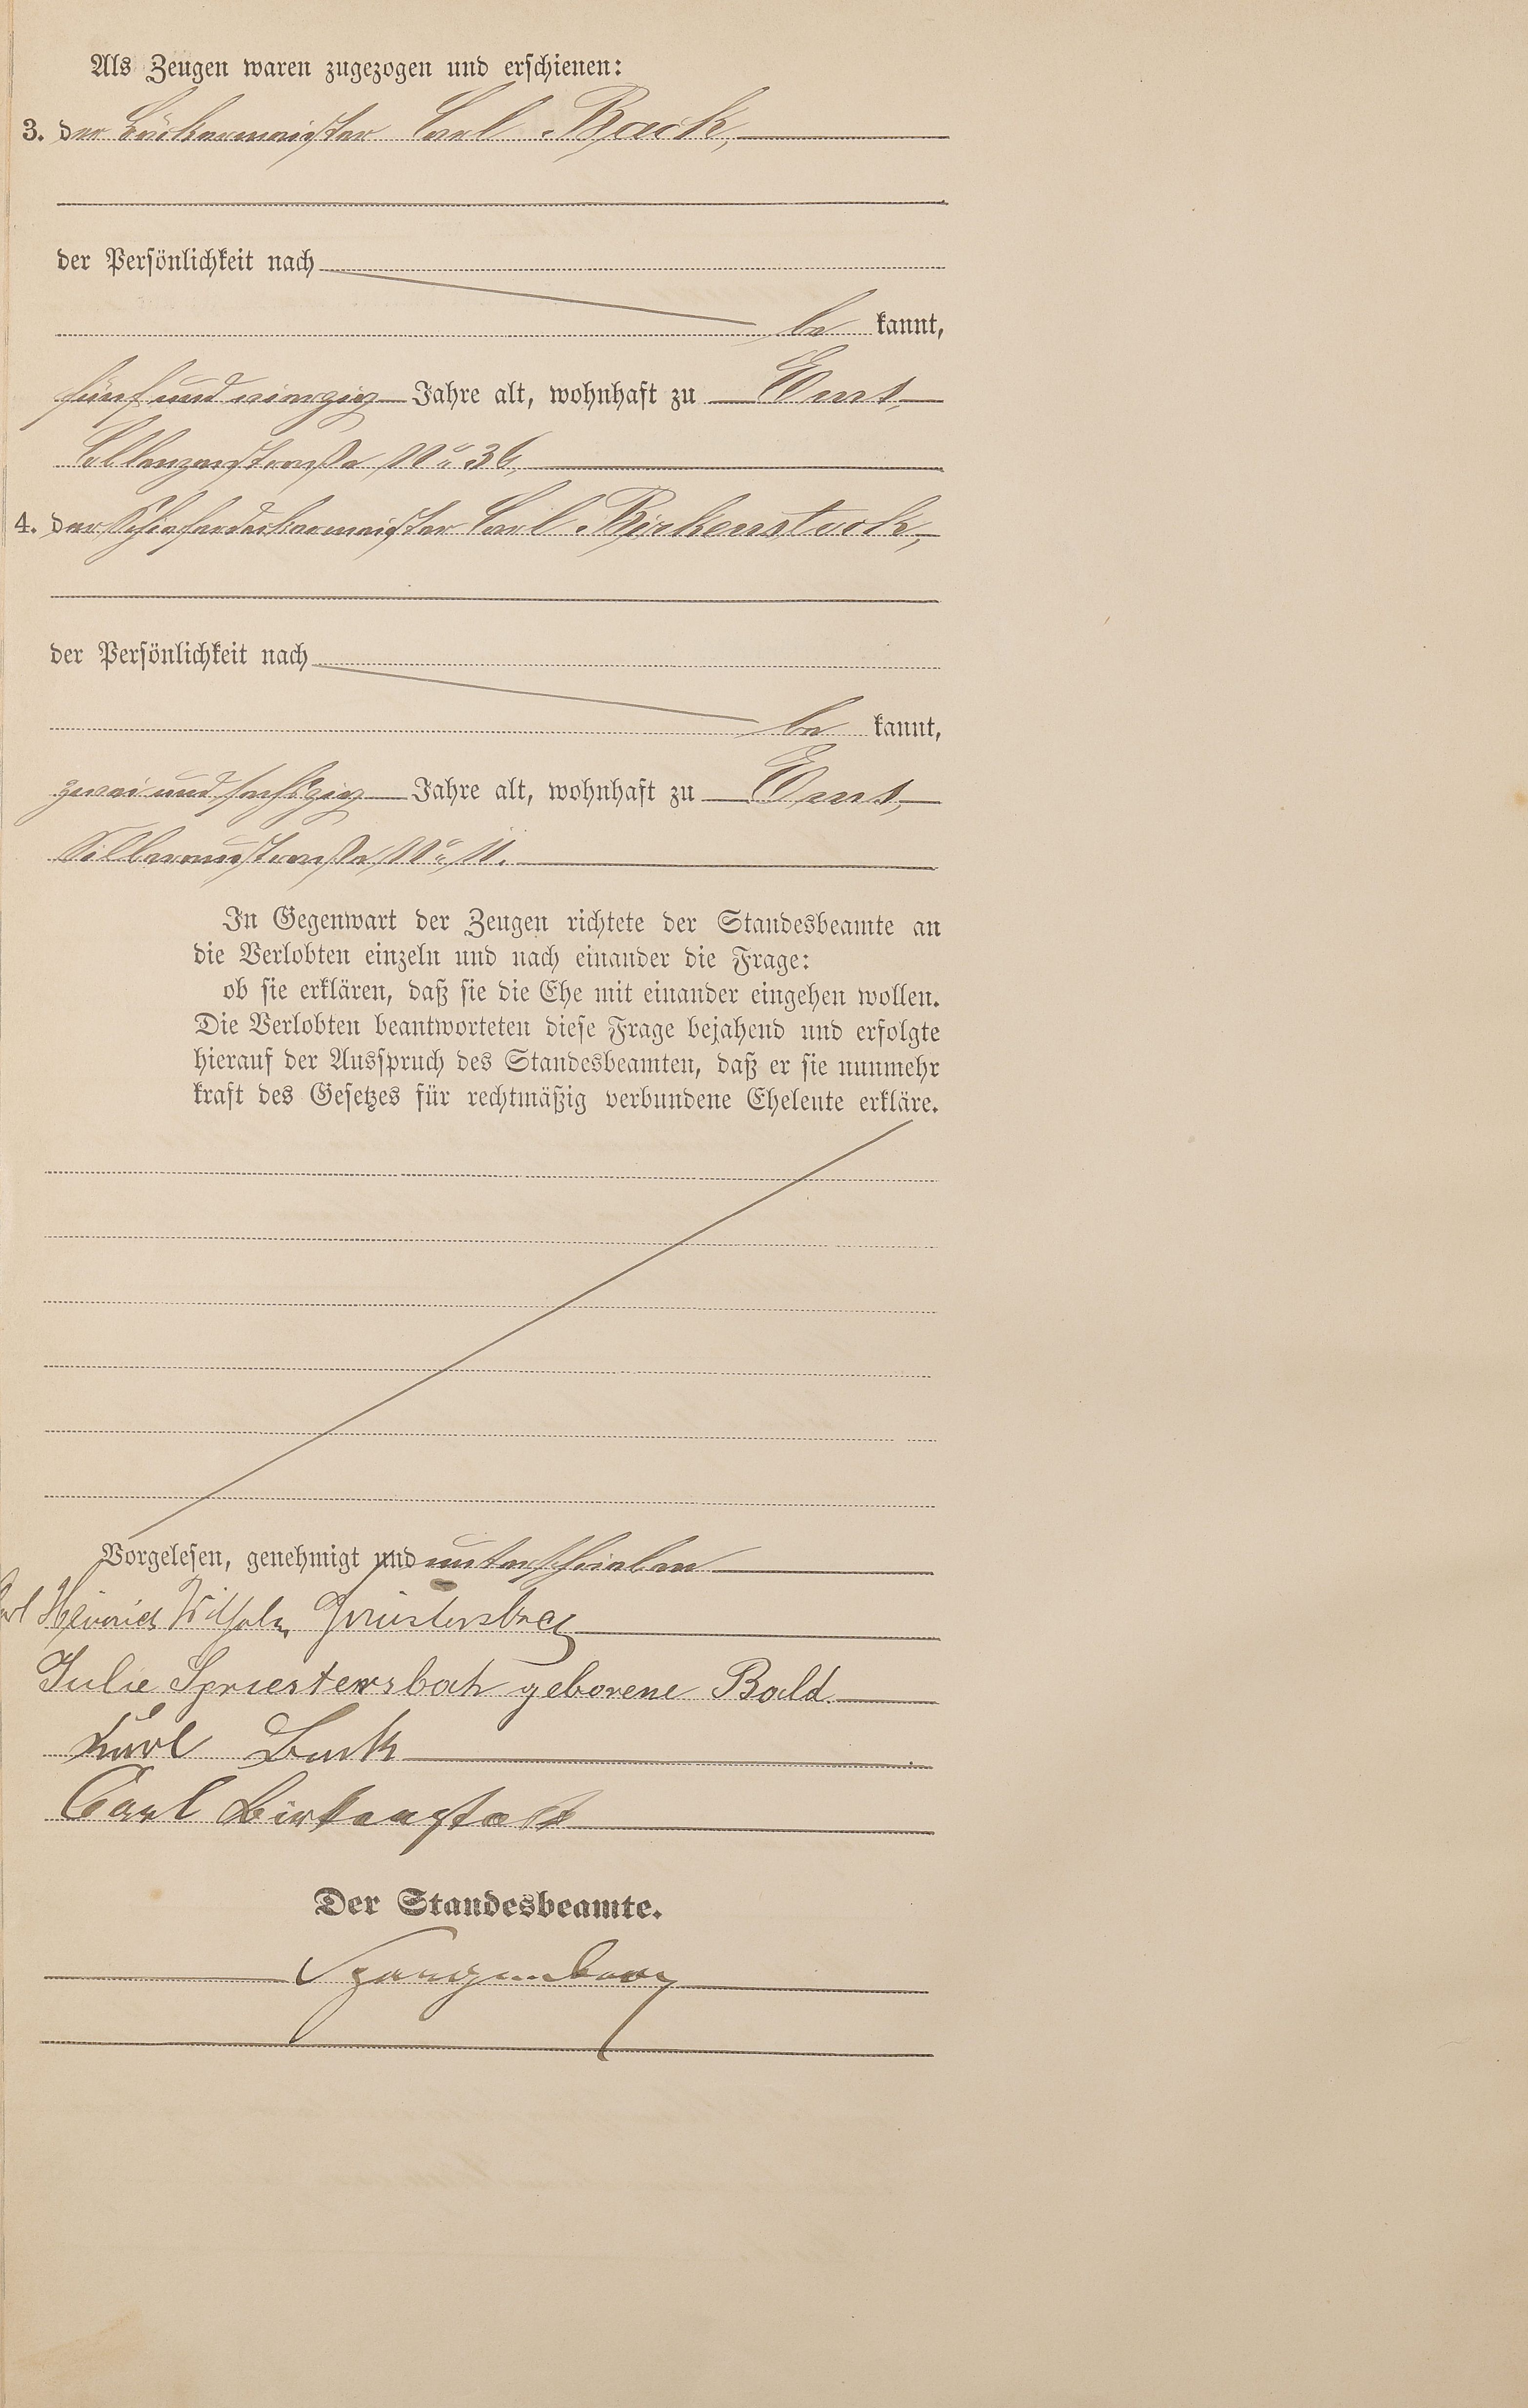 Als Zeugen waren zugezogen und erschienen:
3. der Bäckermeister Carl Back,
der Persönlichkeit nach
be kannt,
fünf und vierzig Jahre alt, wohnhaft zu Ems,
Coblenzerstraße No 36,
4. der Schieferdeckermeister Carl Birkenstock,
der Persönlichkeit nach
be kannt,
zwei und sechszig Jahre alt, wohnhaft zu Ems,
Silberaustraße No 11.
In Gegenwart der Zeugen richtete der Standesbeamte an
die Verlobten einzeln und nach einander die Frage:
ob sie erklären, daß sie die Ehe mit einander eingehen wollen.
Die Verlobten beantworteten diese Frage bejahend und erfolgte
hierauf der Ausspruch des Standesbeamten, daß er sie nunmehr
kraft des Gesetzes für rechtmäßig verbundene Eheleute erkläre.
Vorgelesen, genehmigt und unterschrieben
Heinrich Wilhelm Spriestersbach
Julie Spriestersbach geborene Bald.
Karl Back
Carl Birkenstock
Der Standesbeamte.